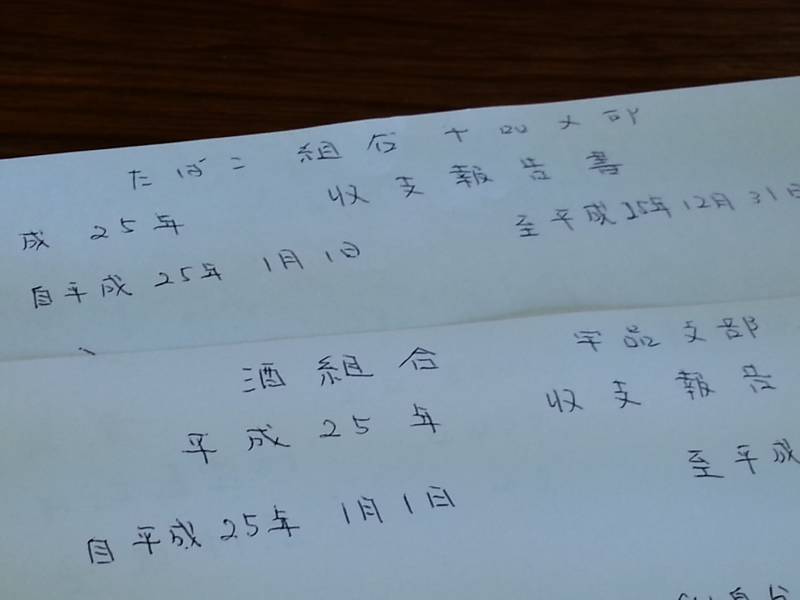 たばこ組合 宇品支部
収支報告書
成 25年
自平成 25年 1月1日 至平成25年12月31日
酒組合 宇品支部
平成25年 収支報告
自平成25年 1月1日 至平成